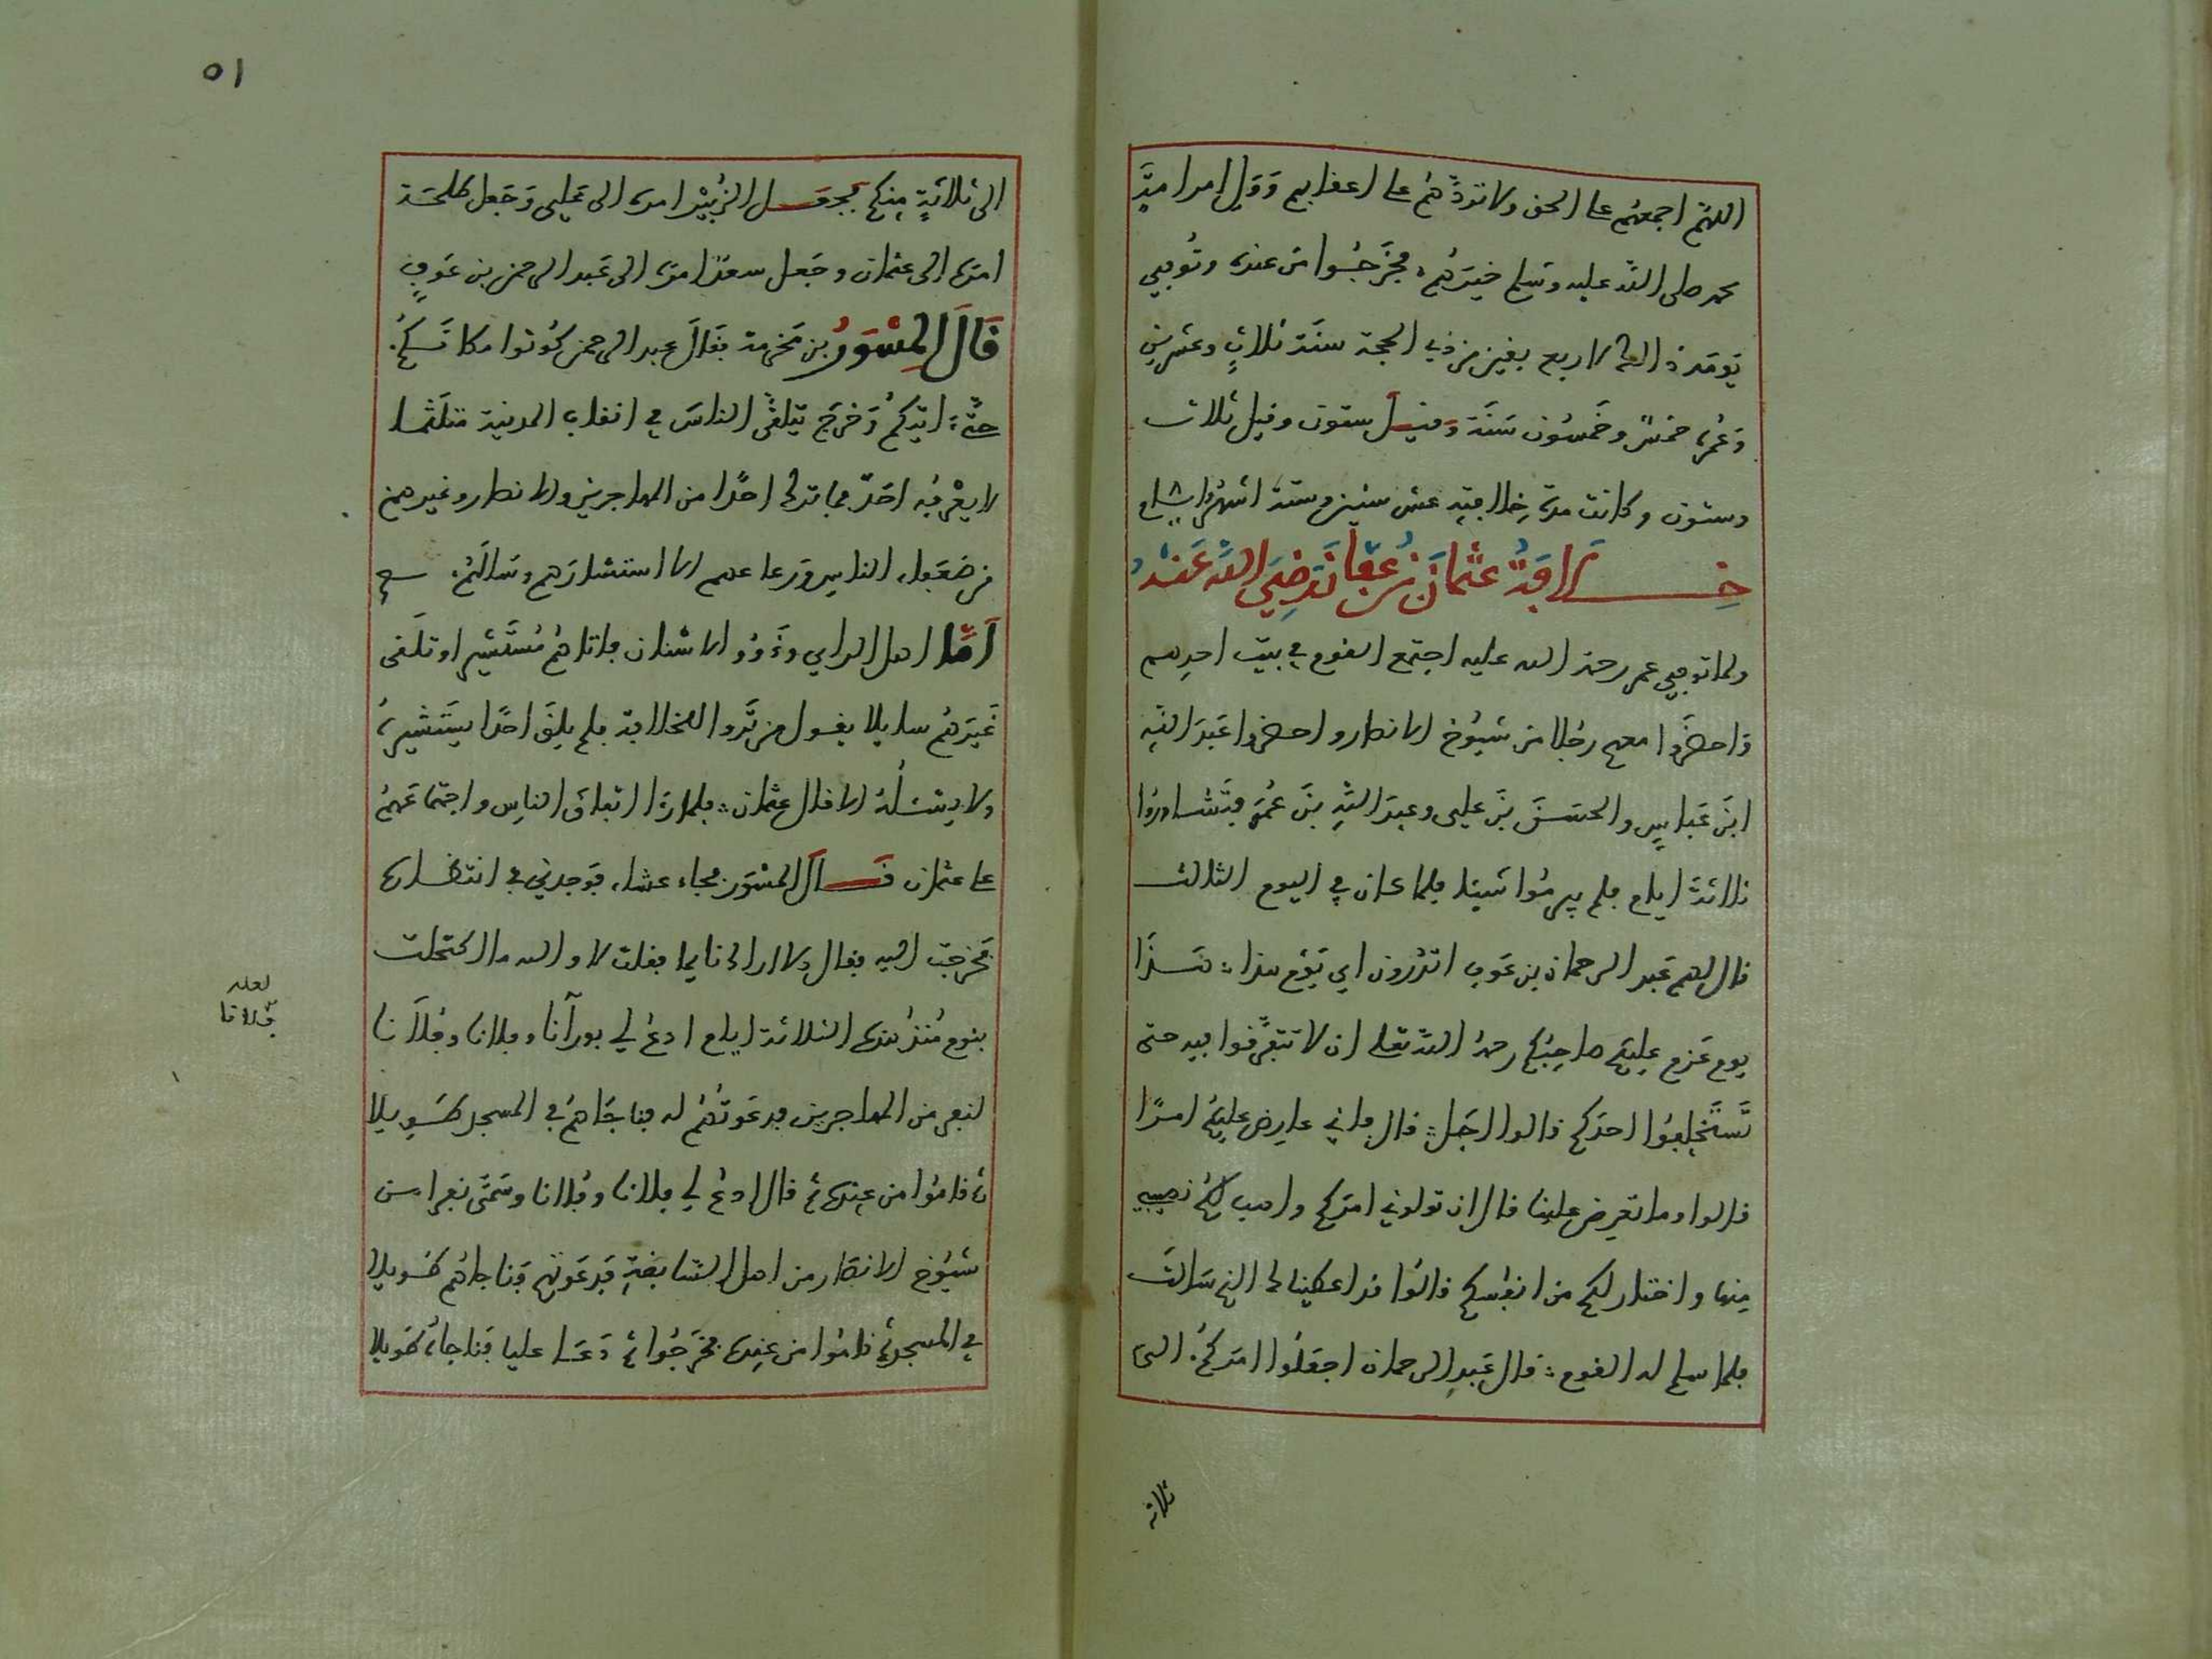 اللهم اجمعهم على الحق ولا تردهم على اعقابهم وول امر امة
محمد صلى الله عليه وسلم خيرهم، فخرجوا من عنده وتوفي
يومئذ لاربع بقين من ذي الحجة سنة ثلاث وعشرين
وعمره خمس وخمسون سنة وقيل ستون وقيل ثلاث
وستون وكانت مدة خلافته عشر سنين وستة اشهر وايام
خلافة عثمان بن عفان رضي الله عنه
ولما توفي عمر رحمة الله عليه اجتمع القوم في بيت احدهم
واحضروا معهم رجلا من شيوخ الانصار واحضروا عبد الله
ابن عباس والحسن بن علي وعبد الله بن عمر فتشاوروا
ثلاثة ايام فلم يبرموا شيئا فلما كان في اليوم الثالث
قال لهم عبد الرحمان بن عوف اتدرون اي يوم هذا؛ هذا
يوم عزم عليكم صاحبكم رحمه الله تعلى ان لا تتفرقوا فيه حتى
تستخلفوا احدكم قالوا اجل؛ قال فاني عارض عليكم امرا
قالوا وما تعرض علينا قال ان تولوني امركم واهب لكم نصيبي
منها واختار لكم من انفسكم قالوا قد اعطيناك الذي سالت
فلما سلم له القوم؛ قال عبد الرحمان اجعلوا امركم الى
ثلاثة
٥١
الى ثلاثة منكم فجعل الزبير امره الى علي وجعل طلحة
امره الى عثمان وجعل سعد امره الى عبد الرحمن بن عوف
قال المسور بن مخرمة فقال عبد الرحمن كونوا مكانكم
حتى اتيكم وخرج يتلقى الناس في انقاب المدينة متلثما
لا يعرفه احد فما ترك احدا من المهاجرين والانصار وغيرهم
من ضعفاء الناس ورعاعهم الا استشارهم وسالهم
اما اهل الراي وذوو الاسنان فاتاهم مستشيرا وتلقى
غيرهم سايلا يقول من ترو الخلافة فلم يلق احدا يستشيره
ولا يسئله الا قال عثمان؛ فلما را اتفاق الناس واجتماعهم
على عثمان قال المسور فجاء عشاء فوجدني في انتظاره
فخرجت اليه فقال الا اراك نايما فقلت لا والله ما اكتحلت
بنوم منذ هذه الثلاثة ايام ادع لي فلانا وفلانا
لعله
فلانا
لنفر من المهاجرين فدعوتهم له فناجاهم في المسجد طويلا
ثم قاموا من عنده ثم قال ادع لي فلانا وفلانا وسمى نفرا من
شيوخ الانصار من اهل السابقة فدعوتهم فناجاهم طويلا
في المسجد ثم قاموا من عنده فخرجوا ثم دعا عليا فناجاه طويلا